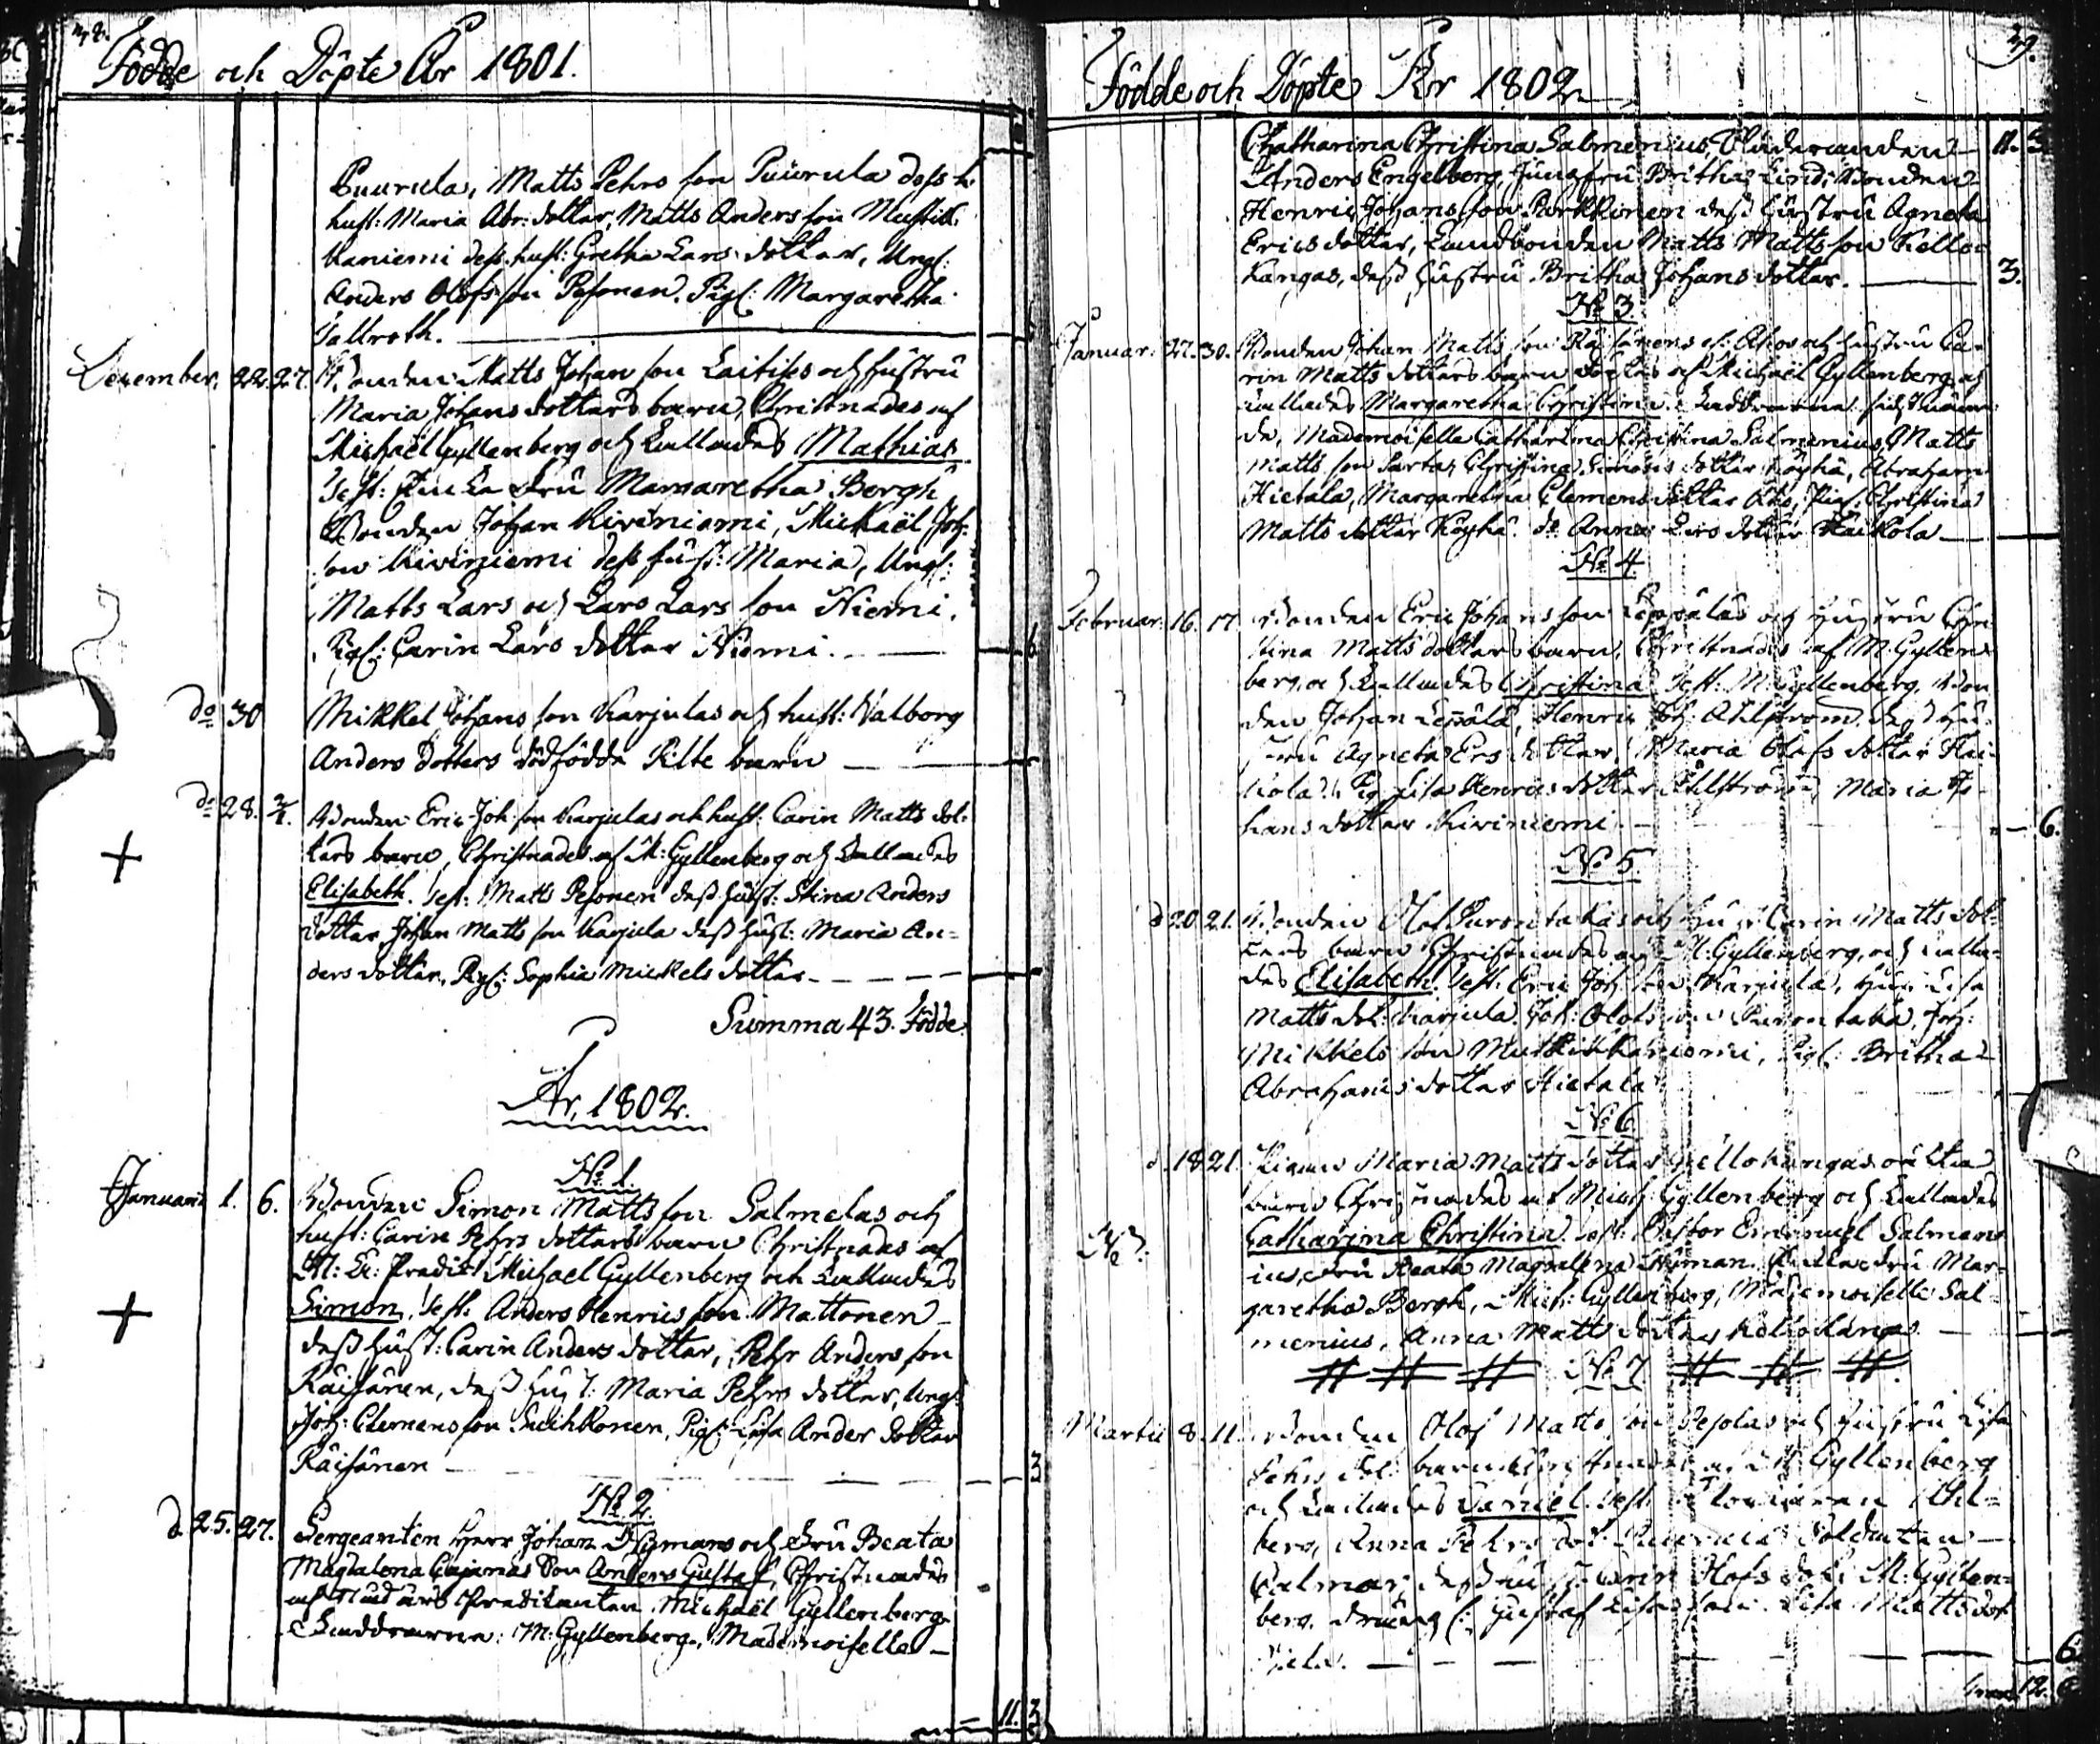 Födde och Döpte År 1801.
Puurula, Matts Pehrs son Puurula dess
hust: Maria Abr: dotter, Matts Anders son
kaniemi dess hust: Gretha Lars dotter, Ungl:
Anders Olofs son Pesonen. Pigl: Margaretha
Jallroth.
December. 22. 27. Bonden Matts Johan son Laitises och hustru
Maria Johans dotters barn, Christnades af
Michaël Gyllenberg och kallades Mathias.
Test: Enke Fru Margaretha Bergh
Bonden Johan Kiviniemi, Mickaël Joh:
son Kiviniemi dess hust: Maria, Ungl:
Matts Lars och Lars Lars son Niemi.
Pigl: Carin Lars dotter Niemi.
do 30 Mikkel Johans son Karjulas och hust: Valborg
Anders dotters dödfödde Pilte barn
do 28. 2/1. Bonden Eric Joh: son Karjulas och hust: Carin Matts dot-
ters barn, Christnades af M: Gyllenberg och kallades
Elisabeth. Test: Matts Pesonen dess hust: Stina Anders
dotter Johan Matts son Karjula dess hust: Maria An=
ders dotter, Pigl: Sophia Mickels dotter
Summa 43. Födde
År, 1802.
No 1.
Januarii 1. 6. Bonden Simon Matts son Salmelas och
hust: Carin Pehrs dotters barn Christnades af
M: Er: Predik: Michael Gyllenberg och kallades
Simon. Test: Anders Henrics son Mattonen
dess hust: Carin Anders dotter, Pehr Anders son
Räisänen, dess hust: Maria Pehrs dotter, Ungl:
Joh: Clemens son Pigl: Lisa Anders dotter
Räisänen 3
No 2.
d 25. 27. Sergeanten Herr Johan Nymans och Fru Beata
Magdalena Cajanas Son Anders Gustaf, Christnades
af Predikanten Michaël Gyllenberg
Faddrarne: M: Gyllenberg, Mademoiselle
11. 3
39.
Födde och Döpte År 1802
Chatharina Christina Salmenius, Studeranden 11. 3
Anders Engelberg, Jungfru Britha Lind, Bonden
Henric Johans son Parkkinen dess hustru Agneta
Erics dotter, Landbonden Matts Matts son Kello=
kangas, dess hustru Britha Johans dotter. 3.
No 3.
Januar: 27. 30. Bonden Johan Matts son och hustru Ca-
rin Matts dotters barn döptes af Michaël Gyllenberg och
kallades Margaretha Christina. Faddrarne
Mademoiselle Catharina Christina Salmenius, Matts
Matts son Christina Simons dotter Köyhä, Abraham
Hietala, Margaretha Clemens dotter Aho, Pigl: Christina
Matts dotter Köyhä. do Anna Lars dotter Haikola
No 4.
Februar: 16. 17. Bonden Eric Johans son Leppälas och hustru Chri-
stina Matts dotters barn, Christnades af M: Gyllen
berg, och kallades Christina Test: M: Gyllenberg, Bon
den Johan Leppälä, Henric Joh: Ahlström, dess hu-
stru Agneta Ers dotter, Maria Olofs dotter Hai-
kola, Pig: Lisa Henrics dotter Ahlström, Maria Jo-
hans dotter Kiviniemi. 6.
No 5.
d 20. 21. Bonden Olof Purontakas och hust: Carin Matts dot-
ters barn Christnades af M: Gyllenberg, och kalla-
des Elisabeth. Test: Eric Joh: son Karjula, hust: Lisa
Matts dot: Karjula. Joh: Olofs son Purontaka, Joh:
Mikkels son Pigl: Britha
Abrahams dotter Hietala
No 6
d. 18 21. Maria Matts dotter Kellokangas oäkta
barn Christnades af Mich: Gyllenberg och kallades
No 3. Catharina Christina. Test: Pastor Emanuel Salmen=
ius, Fru Beata Magdalena Nyman, Enke Fru Mar=
garetha Bergh, Mich: Gyllenberg, Mademoiselle Sal-
menius, Anna Matts dotter Kellokangas.
No 7
Martii 8. 11. Bonden Olof Matts son Pesolas och hustru Lisa
Pehrs dot: barn Christnades af M: Gyllenberg
och kallades Daniel. Test: Ahl=
berg, Anna Pehrs dot: Puurula Soldaten
Calmar, dess hust: Carin Olofs dot: M: Gyllen=
berg. Dräng: Gustaf Lisa Matts dot
6
12. 6